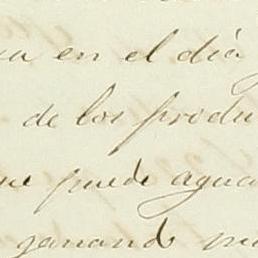 en el dia
de los produ
que puede agua
ganando